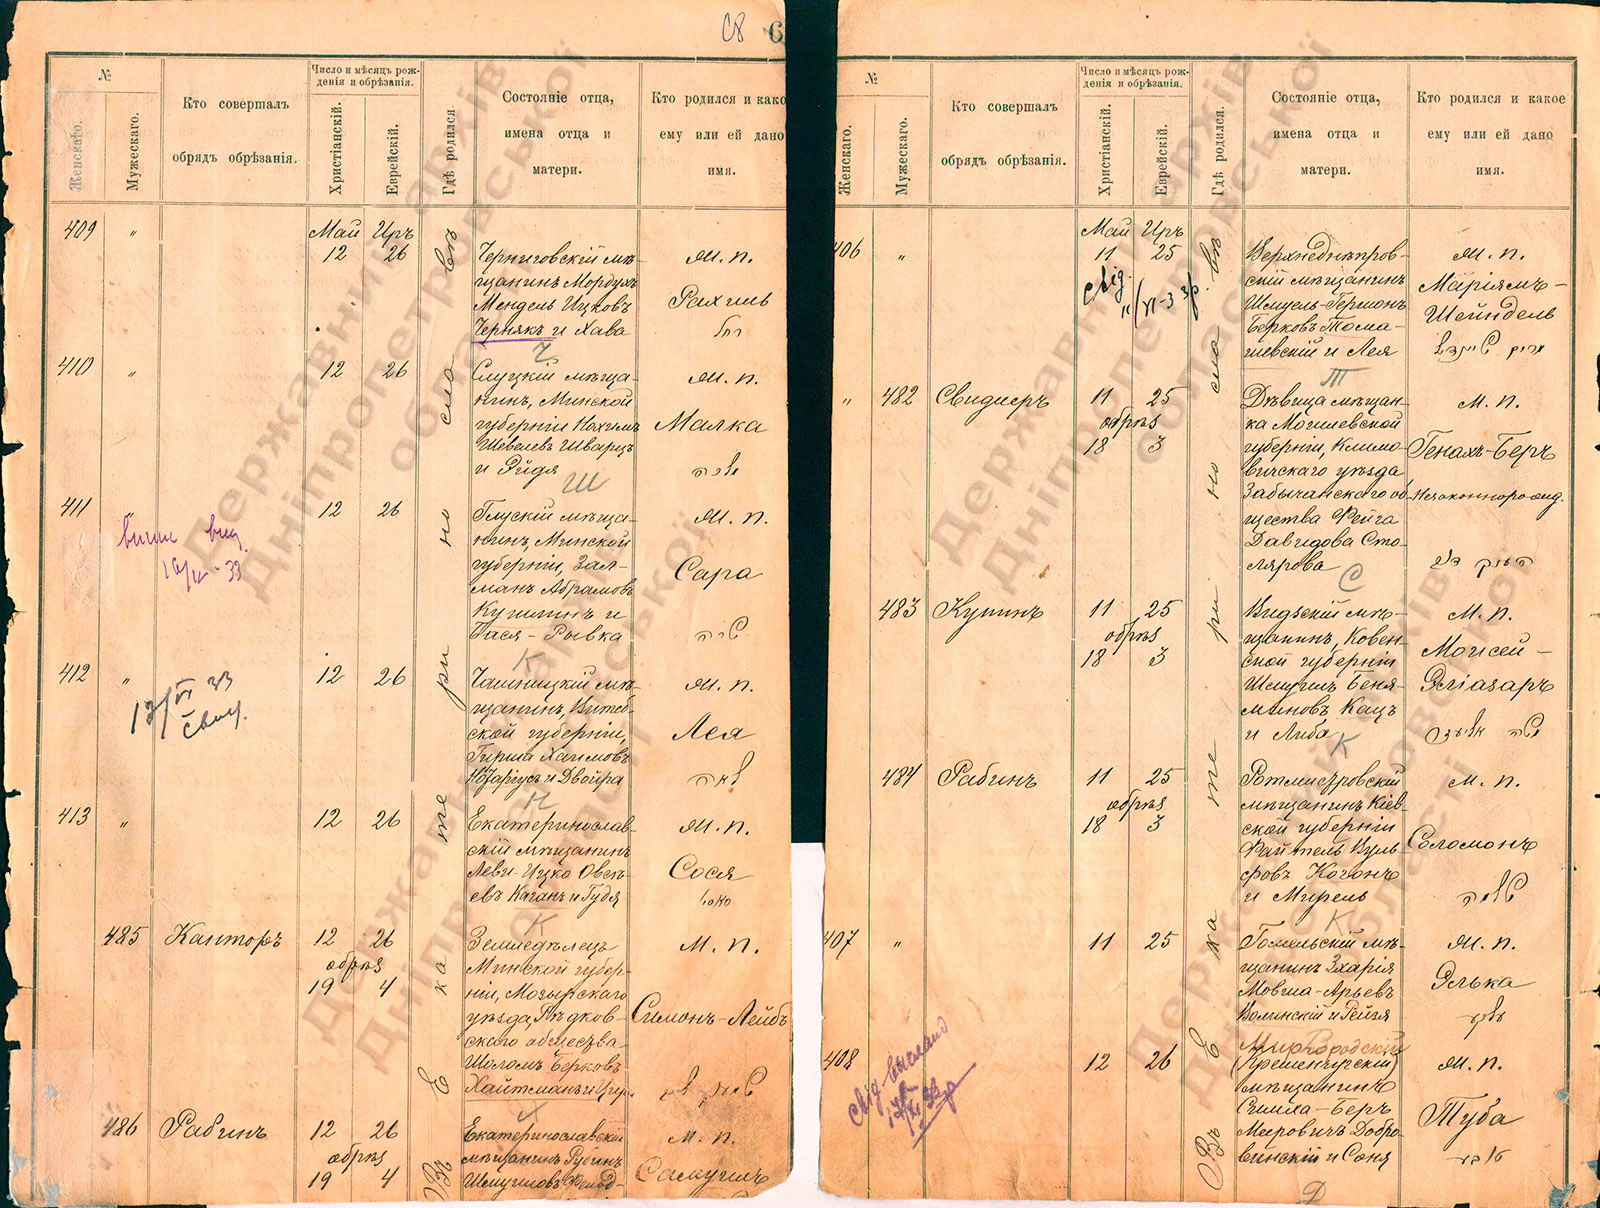 С8 6
№
Женскаго.
Мужескаго.
Кто совершалъ
обрядъ обрѣзанія.
Число и мѣсяцъ рож-
денія и обрѣзанія.
Христіанскій.
Еврейскій.
Гдѣ родился.
Состояніе отца,
имена отца и
матери.
Кто родился и како
ему или ей дано
имя.
Въ Екатеринославѣ
409 "
Май Иръ
12 26
Черниговскій мѣ-
щанинъ Мордухъ
Мендель Ицковъ
Чернякъ и Хава
Ч
М. п.
Рахиль
רחל
410 "
12 26
Слуцкій мѣща-
нинъ, Минской
губерніи Нахимъ
Шевелевъ Шварцъ
и Рейдя
Ш
М. п.
Малка
מלכה
411 "
12 26
Глускій мѣща-
нинъ, Минской
губерніи, Зал-
манъ Абрамовъ
и
Бася-Рывка
К
М. п.
Сара
שרה
412 "
12 26
Чашницкій мѣ-
щанинъ, Витеб-
ской губерніи,
Гирша Хаимовъ
и Двойра
Н
М. п.
Лея
לאה
413 "
12 26
Екатеринослав-
скій мѣщанинъ
Леви-Ицко Овсѣ-
евъ Каганъ и Гудя
К
М. п.
Сося
485 Канторъ
12 26
обрѣз
19 4
Земледѣлецъ
Минской губер-
ніи, Мозырскаго
уѣзда,
скаго общества
Шоломъ Берковъ
М. п.
Симонъ-Лейбъ
486 Рабинъ
12 26
обрѣз
19 4
Екатеринославскій
мѣщанинъ Рубинъ
Шмуиловъ
М. п.
Самуилъ
№
Женскаго.
Мужескаго.
Кто совершалъ
обрядъ обрѣзанія.
Число и мѣсяцъ рож-
денія и обрѣзанія.
Христіанскій.
Еврейскій.
Гдѣ родился.
Состояніе отца,
имена отца и
матери.
Кто родился и какое
ему или ей дано
имя.
Въ Екатеринославѣ
406 "
Май Иръ
11 25
Верхнеднѣпров-
скій мѣщанинъ
Шмуель-Гершонъ
Берковъ Тома-
шевскій и Лея
Т
М. п.
Маріямъ-
Шейндель
" 482 Свидлеръ
11 25
обрѣз
18 3
Дѣвица мѣщан-
ка Могилевской
губерніи, Климо-
вичскаго уѣзда
Забычанскаго об-
щества Фейга
Давидова Сто-
лярова
С
М. п.
Генахъ-Беръ
483 Купинъ
11 25
обрѣз
18 3
Видзскій мѣ-
щанинъ, Ковен-
ской губерніи
Шмуилъ Беня-
миновъ Кацъ
и Либа
К
М. п.
Моисей-
Эліазаръ
משה אליעזר
484 Рабинъ
11 25
обрѣз
18 3
Ротмистровскій
мѣщанинъ Кіев-
ской губерніи
Файтель Вуль-
фовъ Когонъ
и Мирель
К
М. п.
Соломонъ
שלמה
407 "
11 25
Гомельскій мѣ-
щанинъ Зхарія
Мовша-Арьевъ
Волинскій и Рейзя
М. п.
Элька
408
12 26
Миргородскій
(Кременчугскій)
мѣщанинъ
Симха-Беръ
Мееровичъ Добро-
винскій и Соня
Д
М. п.
Туба
Державний архів
Дніпропетровської
області